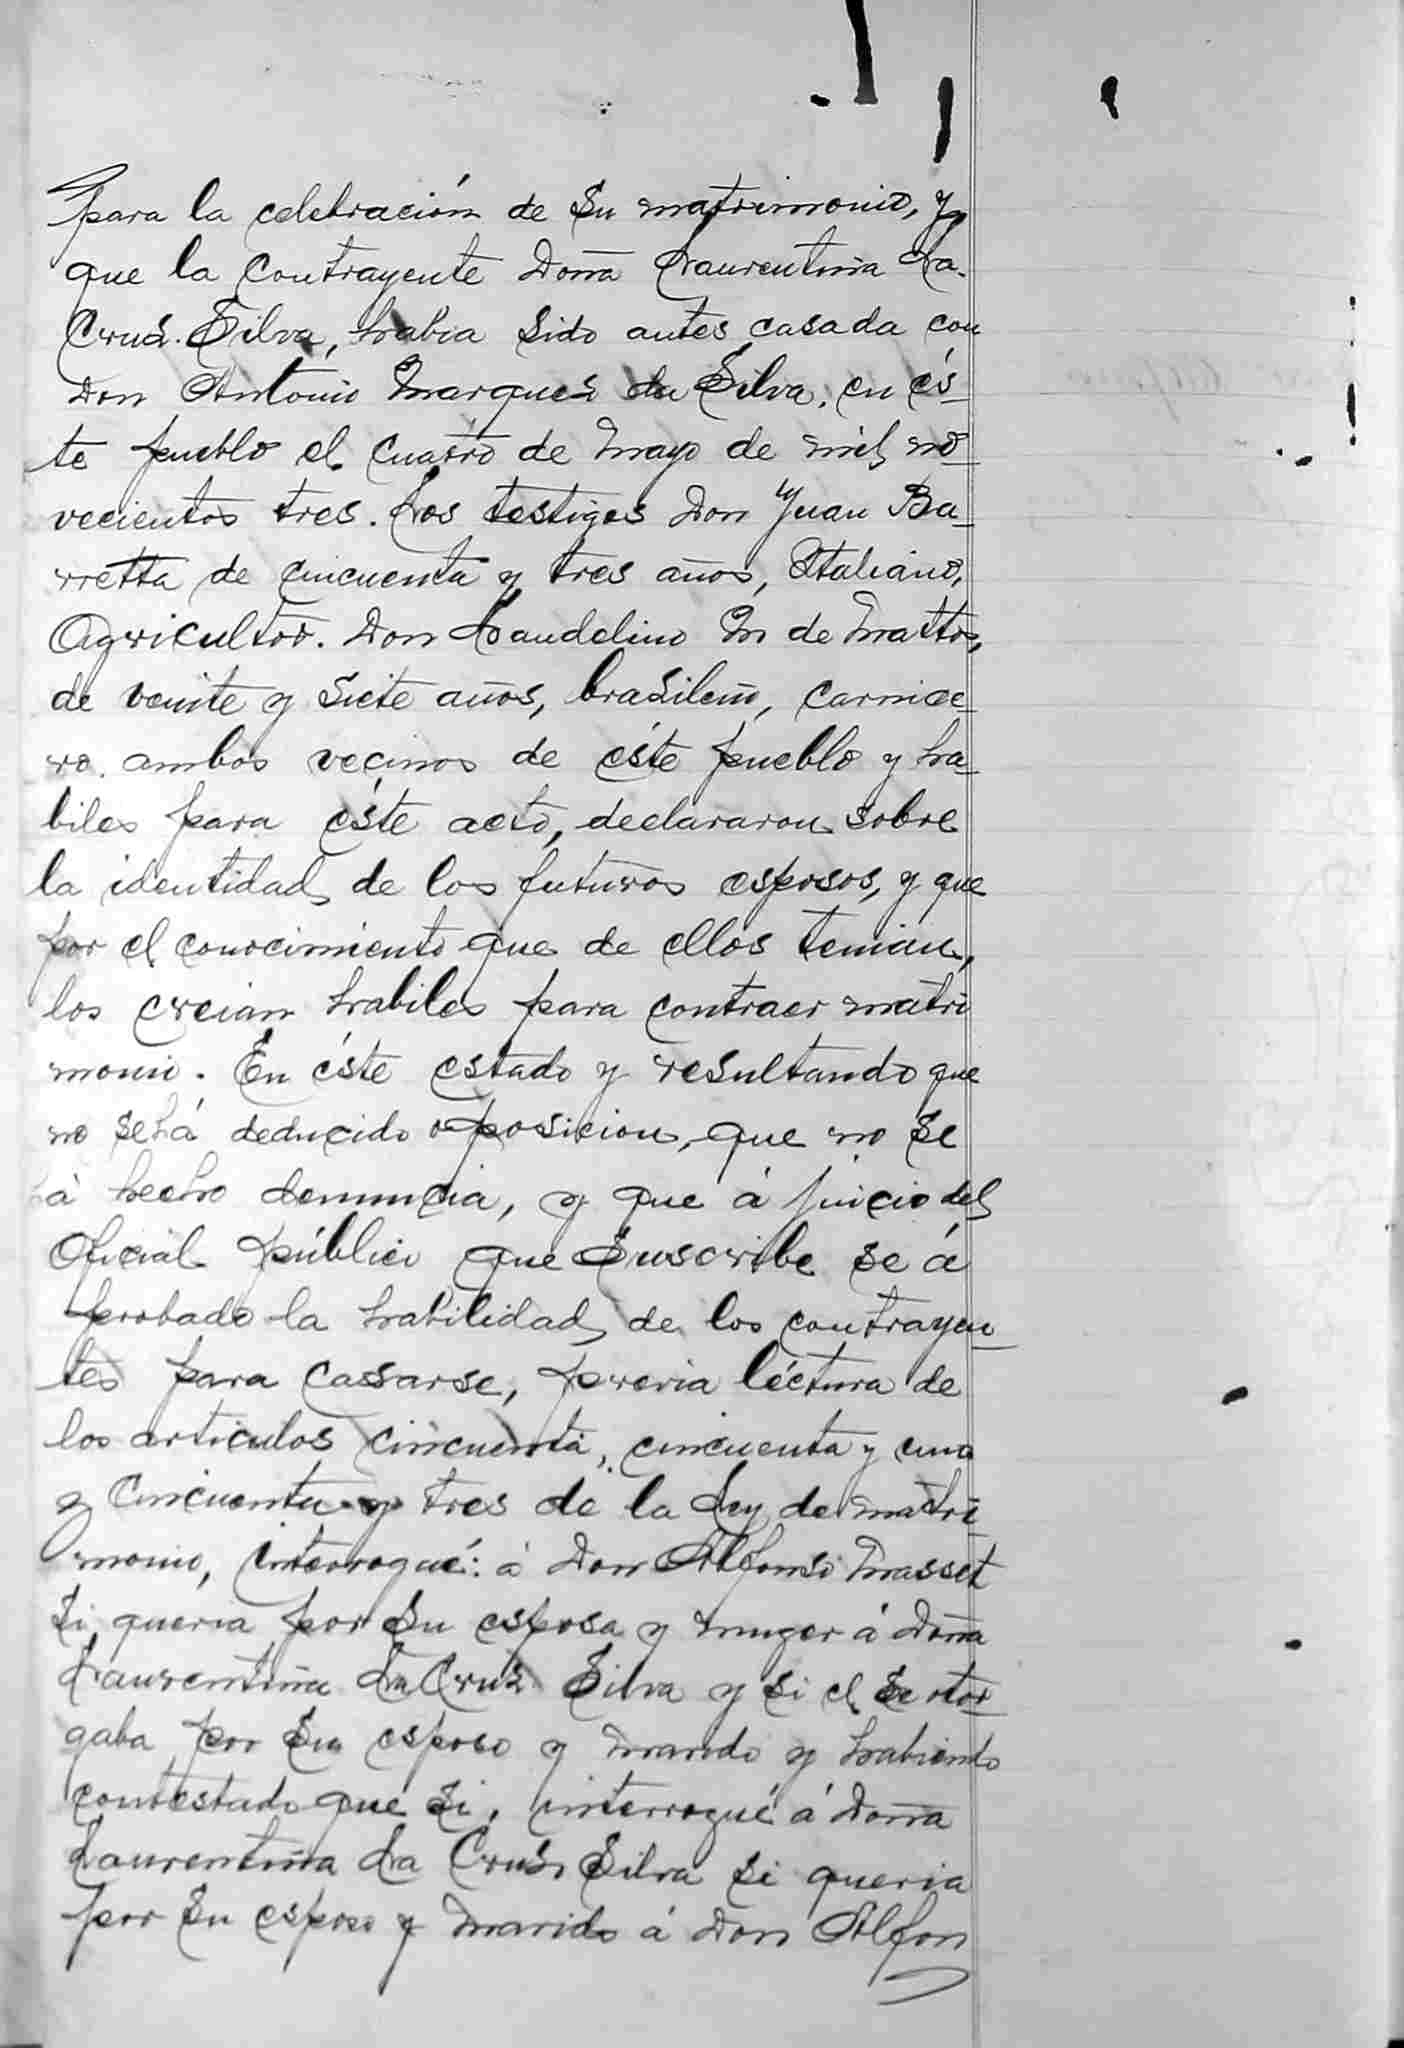 para la celebración de su matrimonio, y
que la contrayente Doña Laurentina La
Cruz Silva, habia sido antes casada con
Don Antonio Marques da Silva, en és-
te pueblo el cuatro de Mayo de mil no-
vecientos tres. Los testigos Don Juan Ba-
rretta de cincuenta y tres años, Italiano,
Agricultor. Don Laudelino M de Mattos,
de veinte y siete años, brasileño, carnice-
ro. ambos vecinos de éste pueblo y ha-
biles para éste acto, declararon sobre
la identidad de los futuros esposos, y que
por el conocimiento que de ellos tenian,
los creian habiles para contraer matri
monio. En éste estado y resultando que
no se há deducido oposicion, que no se
há hecho denuncia, y que á juicio del
Oficial público que suscribe se á
probado la habilidad de los contrayen-
tes para cassarse, previa léctura de
los articulos cincuenta, cincuenta y uno
y cincuenta y tres de la Ley de matri
monio, interrogué: á Don Alfonso Masset
si queria por su esposa y muger á Doña
Laurentina La Cruz Silva y si el se otor-
gaba por su esposo y marido y habiendo
contestado que si, interrogué á Doña
Laurentina La Cruz Silva si queria
por su esposo y marido á Don Alfon